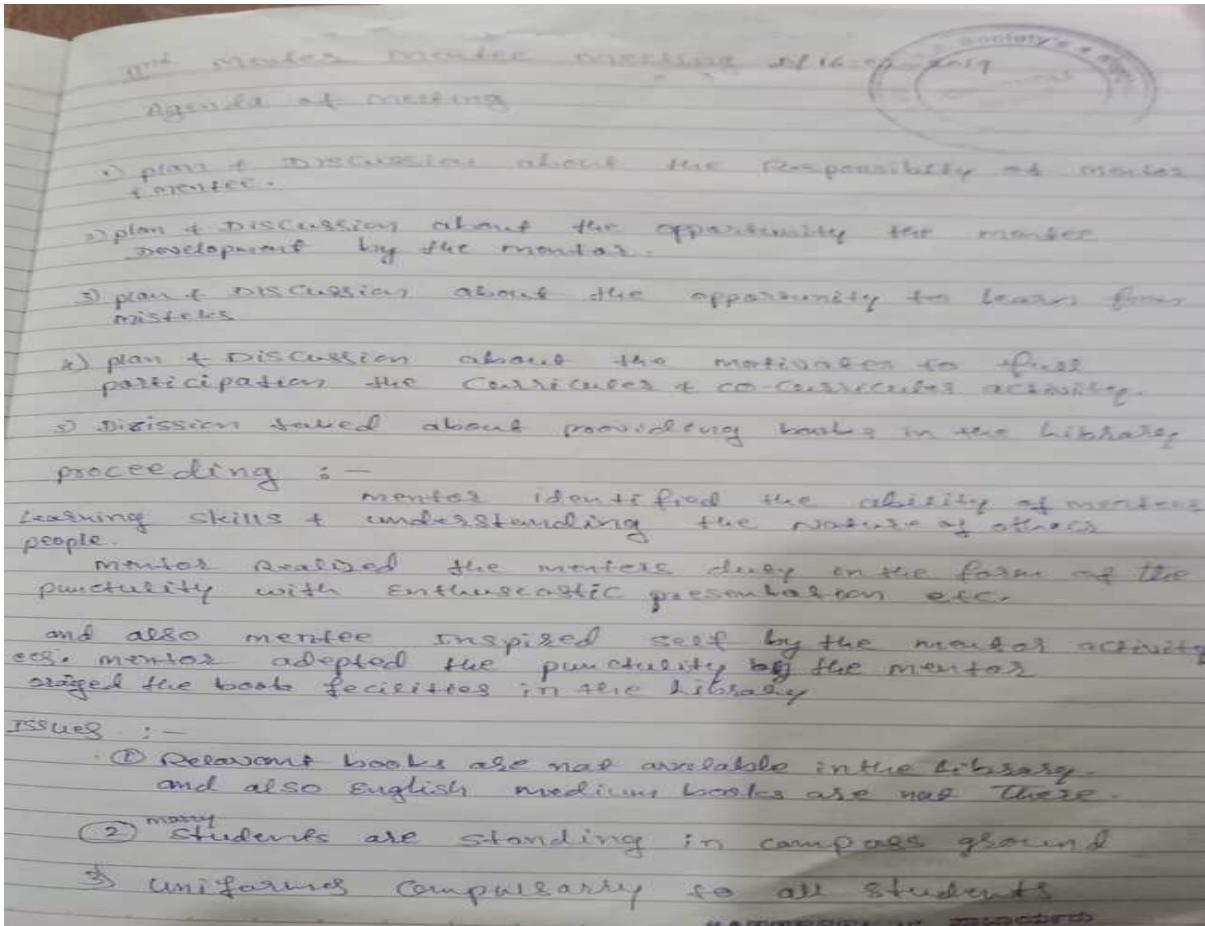 mentor mentee meeting 2019
Society's
Agenda of meeting
1) plan & Discussion about the Responsiblty of mentor
& mentee.
2) plan & Discussion about the opportunity the mentee
Development by the mentor.
3) plan & Discussion about the opportunity to learn from
misteks
4) plan & Discussion about the motivates to full
participation the Curriculer & co-curriculer activity.
5) Dizission taked about providing books in the Library
proceeding : -
mentor identified the ability of mentees
Learning skills & understanding the Nature of others
people.
mentor Realized the menters duey in the form of the
punctulity with Enthuseastic presentation etc.
and also mentee Inspired self by the mentor activity
ees. mentor adepted the punctulity by the mentor
the book fecilities in the Library
Issues : -
① Relavant books are not avelable in the Library.
and also English medium books are not there.
② many students are standing in compass ground
3) uniformes compulsarry to all students